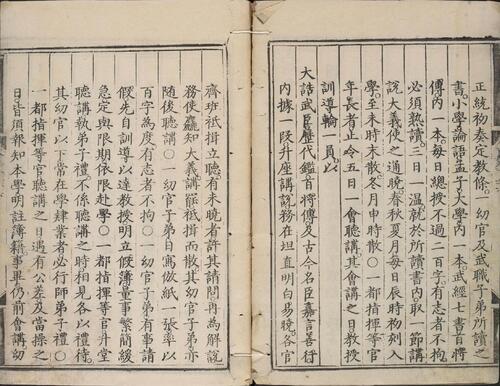 正統初奏定教條○一幼官及武職子弟所讀之
書小學論語孟子大學內一本武經七書百將
傳內一本每日總授不過二百字有志者不拘
必須熟讀三日一溫就於所讀書內取一節講
說大義使之通曉春秋夏月每日辰時初刻入
學至未時末散冬月申時散○一都指揮等官
年長者止令五日一會聽講其會講之日教授
訓導輪一員以
大誥武臣歷代鑑首將傳及古今名臣嘉言善行
內據一段升座講說務在坦直明白易曉各官
齊班袛揖立聽有未曉者許其請問再為解說
務使粗知大義講罷袛揖而散其幼官子弟亦
隨後聽講○一幼官子弟日寫倣紙一張率以
百字為度有志者不拘○一幼官子弟有事請
假先自訓導以達教授明立假簿量事繁簡緩
急定與限期依限赴學○一都指揮等官升堂
聽講執弟子禮不係聽講之時相見各以禮待
其幼官以下常在學肄業者必行師弟子禮○
一都指揮等官聽講之日遇有公差及當操之
日皆須報知本學明註簿籍事畢仍前會講幼